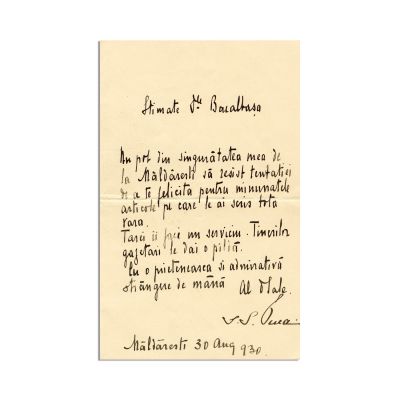 Stimate Dle Bacalbașa
Nu pot din singurătatea mea de
la Măldărești să resist tentației
de a te felicita pentru minunatele
articole pe care le ai scris tótă
vara.
Țarei îi faci un serviciu. Tinerilor
gazetari le dai o pildă.
Cu o prietenească și admirativă
strângere de mână Al Dtale.
Măldărești 30 Aug 930.